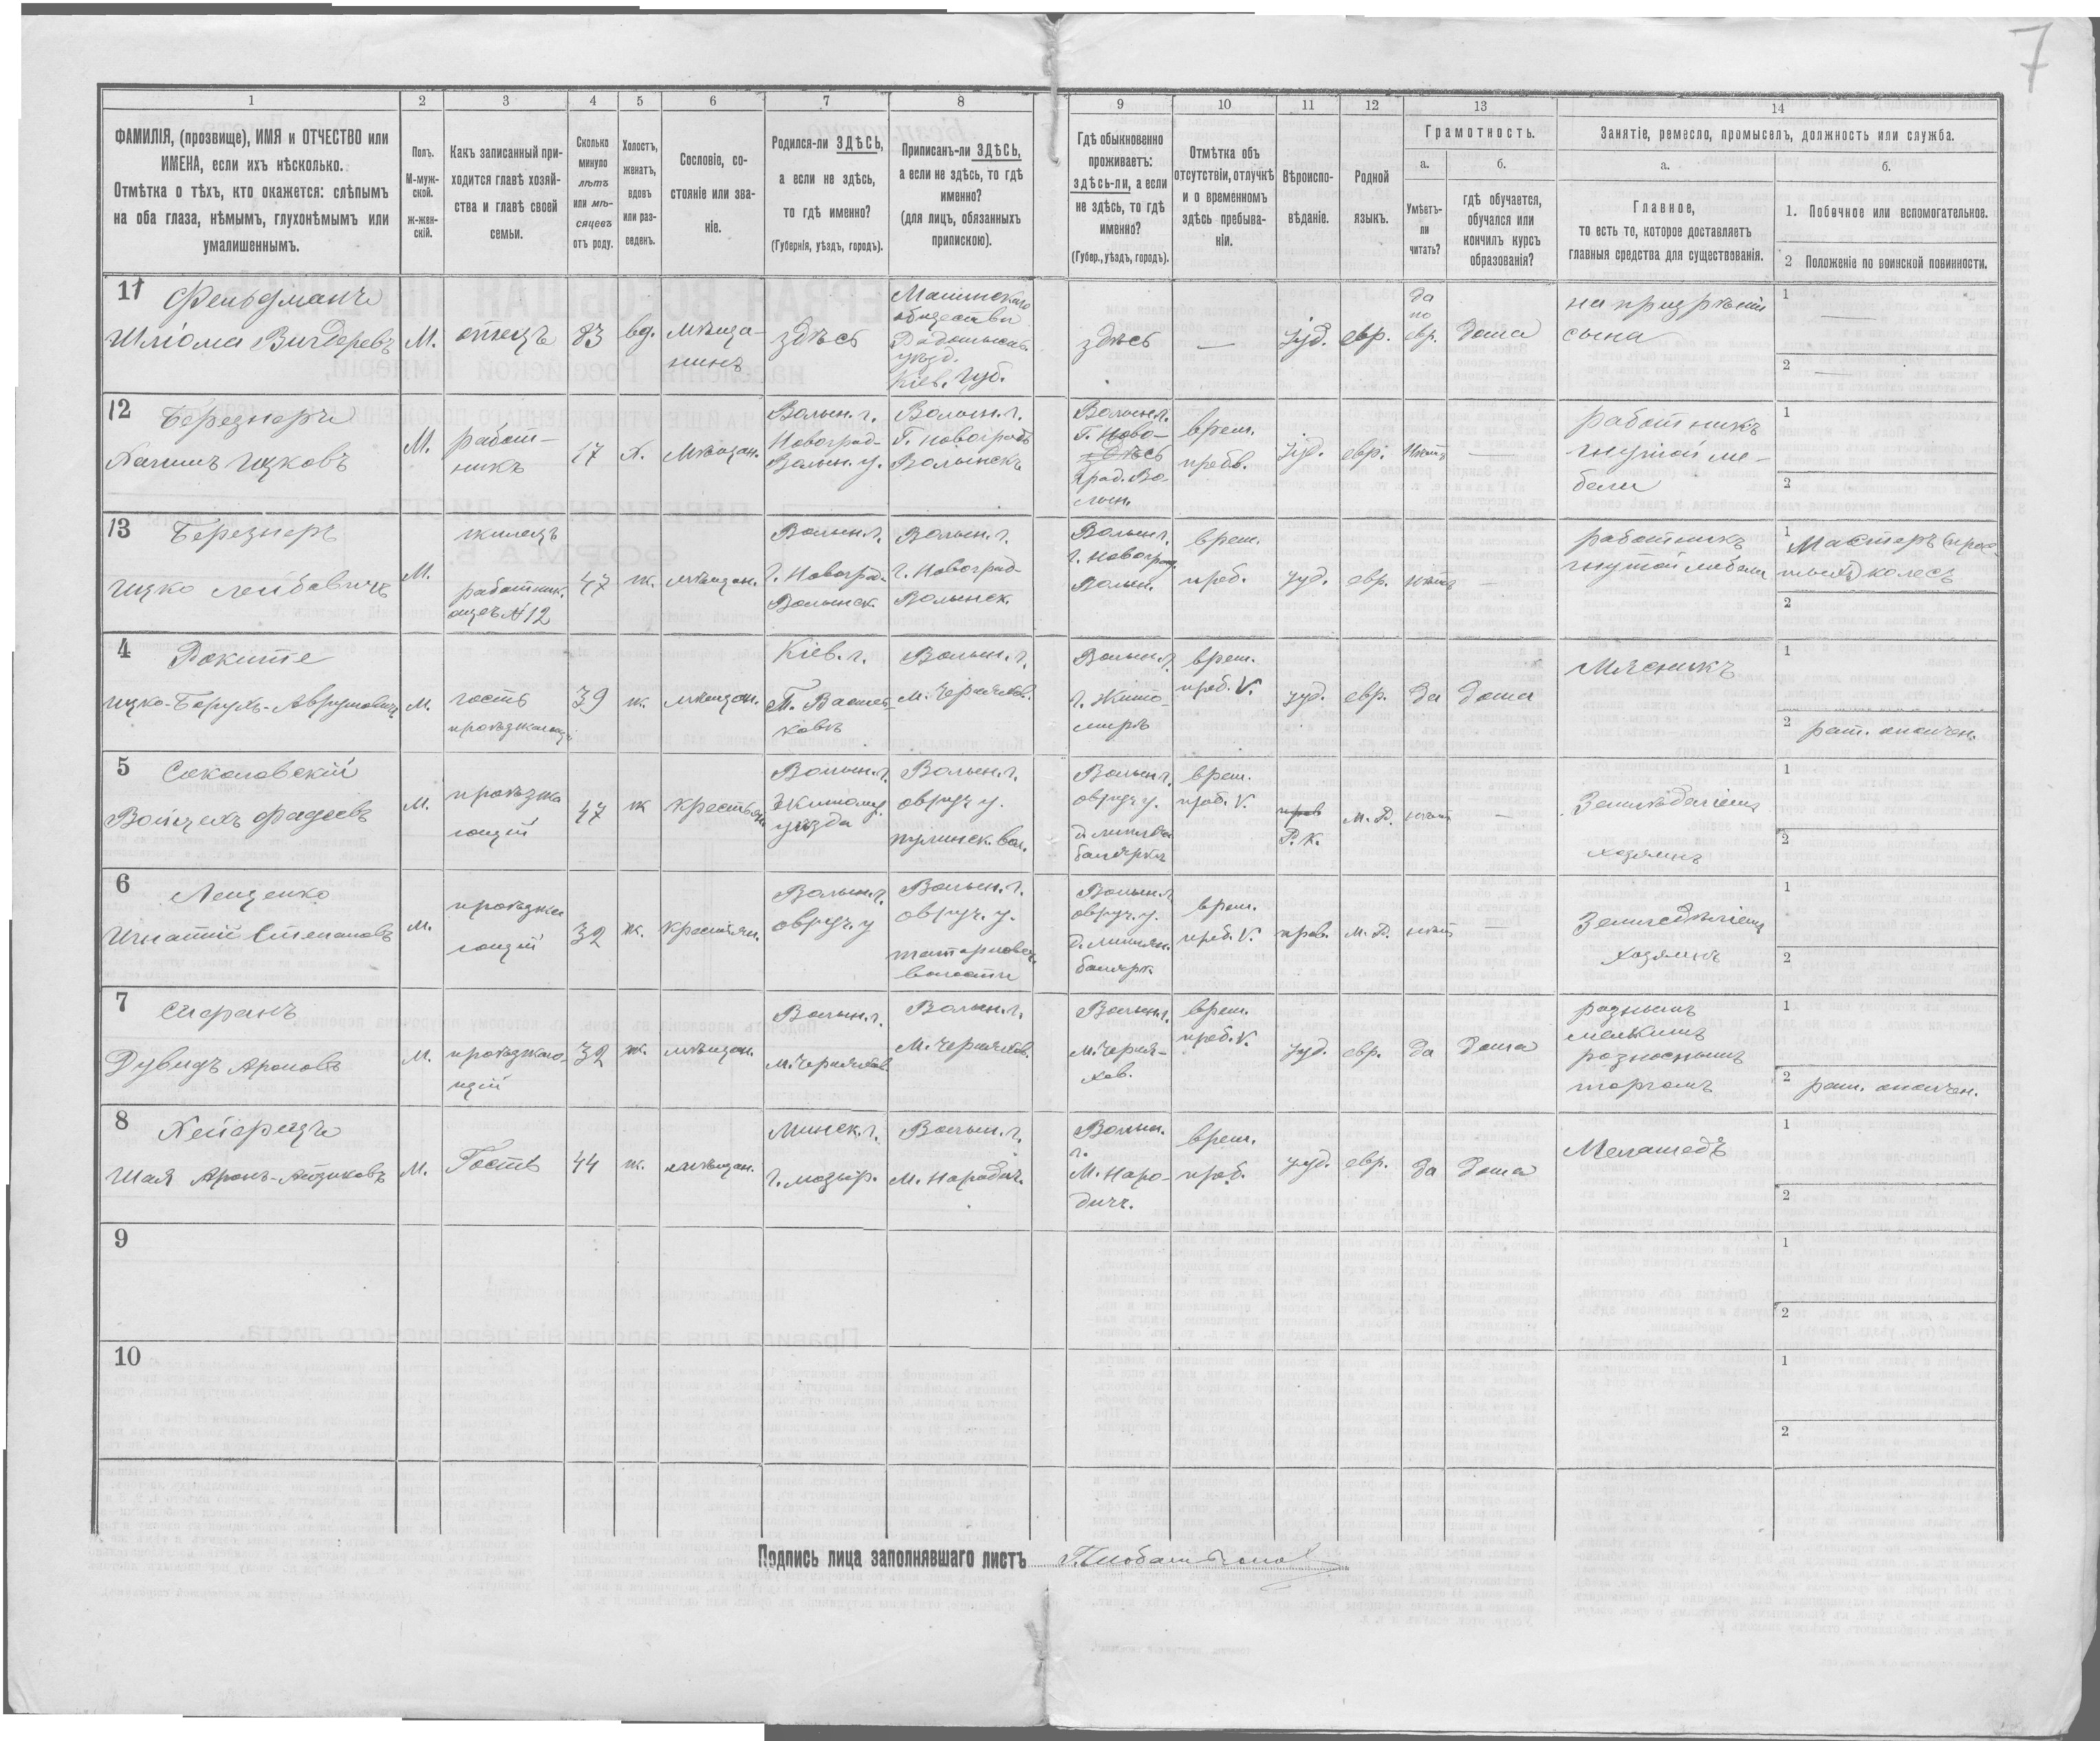 7
1 2 3 4 5 6 7 8 9 10 11 12 13 14
ФАМИЛІЯ, (прозвище), ИМЯ и ОТЧЕСТВО или
ИМЕНА, если ихъ нѣсколько.
Отмѣтка о тѣхъ, кто окажется: слѣпымъ
на оба глаза, нѣмымъ, глухонѣмымъ или
умалишеннымъ.
Полъ.
М-муж-
ской.
ж-жен-
скій.
Какъ записанный при-
ходится главѣ хозяй-
ства и главѣ своей
семьи.
Сколько
минуло
лѣтъ
или мѣ-
сяцевъ
отъ роду.
Холостъ,
женатъ,
вдовъ
или раз-
веденъ.
Сословіе, со-
стояніе или зва-
ніе.
Родился-ли ЗДѢСЬ,
а если не здѣсь,
то гдѣ именно?
(Губернія, уѣздъ, городъ).
Приписанъ-ли ЗДѢСЬ,
а если не здѣсь, то гдѣ
именно?
(для лицъ, обязанныхъ
припискою).
Гдѣ обыкновенно
проживаетъ:
здѣсь-ли, а если
не здѣсь, то гдѣ
именно?
(Губер., уѣздъ, городъ).
Отмѣтка объ
отсутствіи, отлучкѣ
и о временномъ
здѣсь пребыва-
ніи.
Вѣроиспо-
вѣданіе.
Родной
языкъ.
Грамотность.
а.
Умѣетъ-
ли
читать?
б.
гдѣ обучается,
обучался или
кончилъ курсъ
образованія?
Занятіе, ремесло, промыселъ, должность или служба.
а.
Главное,
то есть то, которое доставляетъ
главныя средства для существованія.
б.
1. Побочное или вспомогательное.
2 Положеніе по воинской повинности.
11 Фельдманъ
Шліома Вигдеровъ
М.
отецъ
83
вд.
мѣща-
нинъ
здѣсь
общества
Кіев. губ.
здѣсь
—
іуд.
евр.
да
по
евр.
дома
на призрѣніи
сына
1 —
2 —
12 Березнеръ
Ицковъ
М.
работ-
никъ
17
х.
мѣщан.
Волын. г.
Новоград-
Волын. у.
Волын. г.
Г. Новоградъ
Волынскъ
Волын. г.
Г. Ново-
здѣсь
град. Во-
лын.
врем.
пребв.
іуд.
евр.
нѣтъ
—
работникъ
гнутой ме-
бели
1
2
13 Березнеръ
Ицко Лейбовичъ
М.
жилецъ
работник.
отецъ №12
47
ж.
мѣщан.
Волын. г.
г. Новоград-
Волынск.
Волын. г.
г. Новоград-
Волынск.
Волын. г.
г. Новоград
Волын.
врем.
преб.
іуд.
евр.
нѣтъ
—
работникъ
гнутой мебели
1 Мастеръ
колесъ
2
4 Роките
Ицко-Борухъ-Аврумовичъ
М.
гость
проѣзжающій
39
ж.
мѣщан.
Кіев. г.
Г. Василь-
ковъ
Волын. г.
м. Черняхов.
Волын. г.
г. Жито-
миръ
врем.
преб. V.
іуд.
евр.
да
дома
Мясникъ
1
2 рат. ополчен.
5 Соколовскій
Войцехъ Фадѣевъ
М.
проѣзжа
ющій
47
ж
крестьян.
Волын. г.
Житомир.
уѣзда
Волын. г.
овруч. у.
Волын. г.
овруч. у.
врем.
преб. V.
прав
Р. К.
М. Р.
нѣтъ
—
Земледѣліемъ
хозяинъ
1
2
6 Лещенко
Игнатій Степановъ
М.
проѣзжа
ющій
32
ж.
крестьян.
Волын. г.
овруч. у
Волын. г.
овруч. у.
волости
Волын. г.
овруч. у.
врем.
преб. V.
прав.
М. Р.
нѣтъ
—
Земледѣліемъ
хозяинъ
1
2
7
Дувидъ Ароновъ
М.
проѣзжаю-
щій
32
ж.
мѣщан.
Волын. г.
м. Черняхов.
Волын. г.
м. Черняхов.
Волын. г.
м. Черня-
хов.
врем.
преб. V.
іуд.
евр.
да
дома
разнымъ
мелкимъ
разноснымъ
торгомъ
1
2 рат. ополчен.
8
Шая Аронъ-
М.
Гость
44
ж.
мѣщан.
Минск. г.
г. Мозыр.
Волын. г.
м. Народич.
Волын.
г.
м. Наро-
дичи.
врем.
преб.
іуд.
евр.
да
дома
Меламедъ
1
2
9
1
2
10
1
2
Подпись лица заполнявшаго листъ